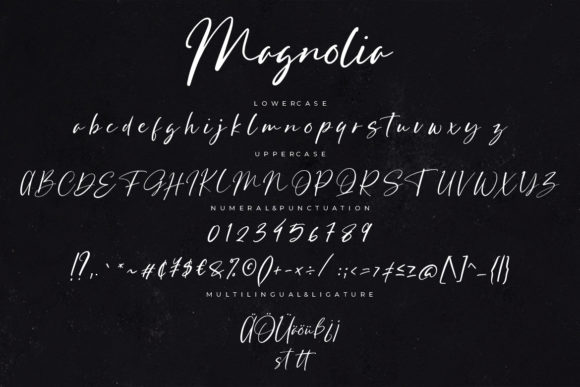 Magnolia
LOWERCASE
abcdefghijklmnopqrstuvwxyz
UPPERCASE
ABCDEFGHIJKLMNOPQRSTUVWXYZ
NUMERAL&PUNCTUATION
0123456789
!?,.`*~#¢¥$€&%©()+-×÷/:;<=>≠≤≥@[\]^_{|}
MULTILINGUAL&LIGATURE
ÄÖÜäöüßij
st tt